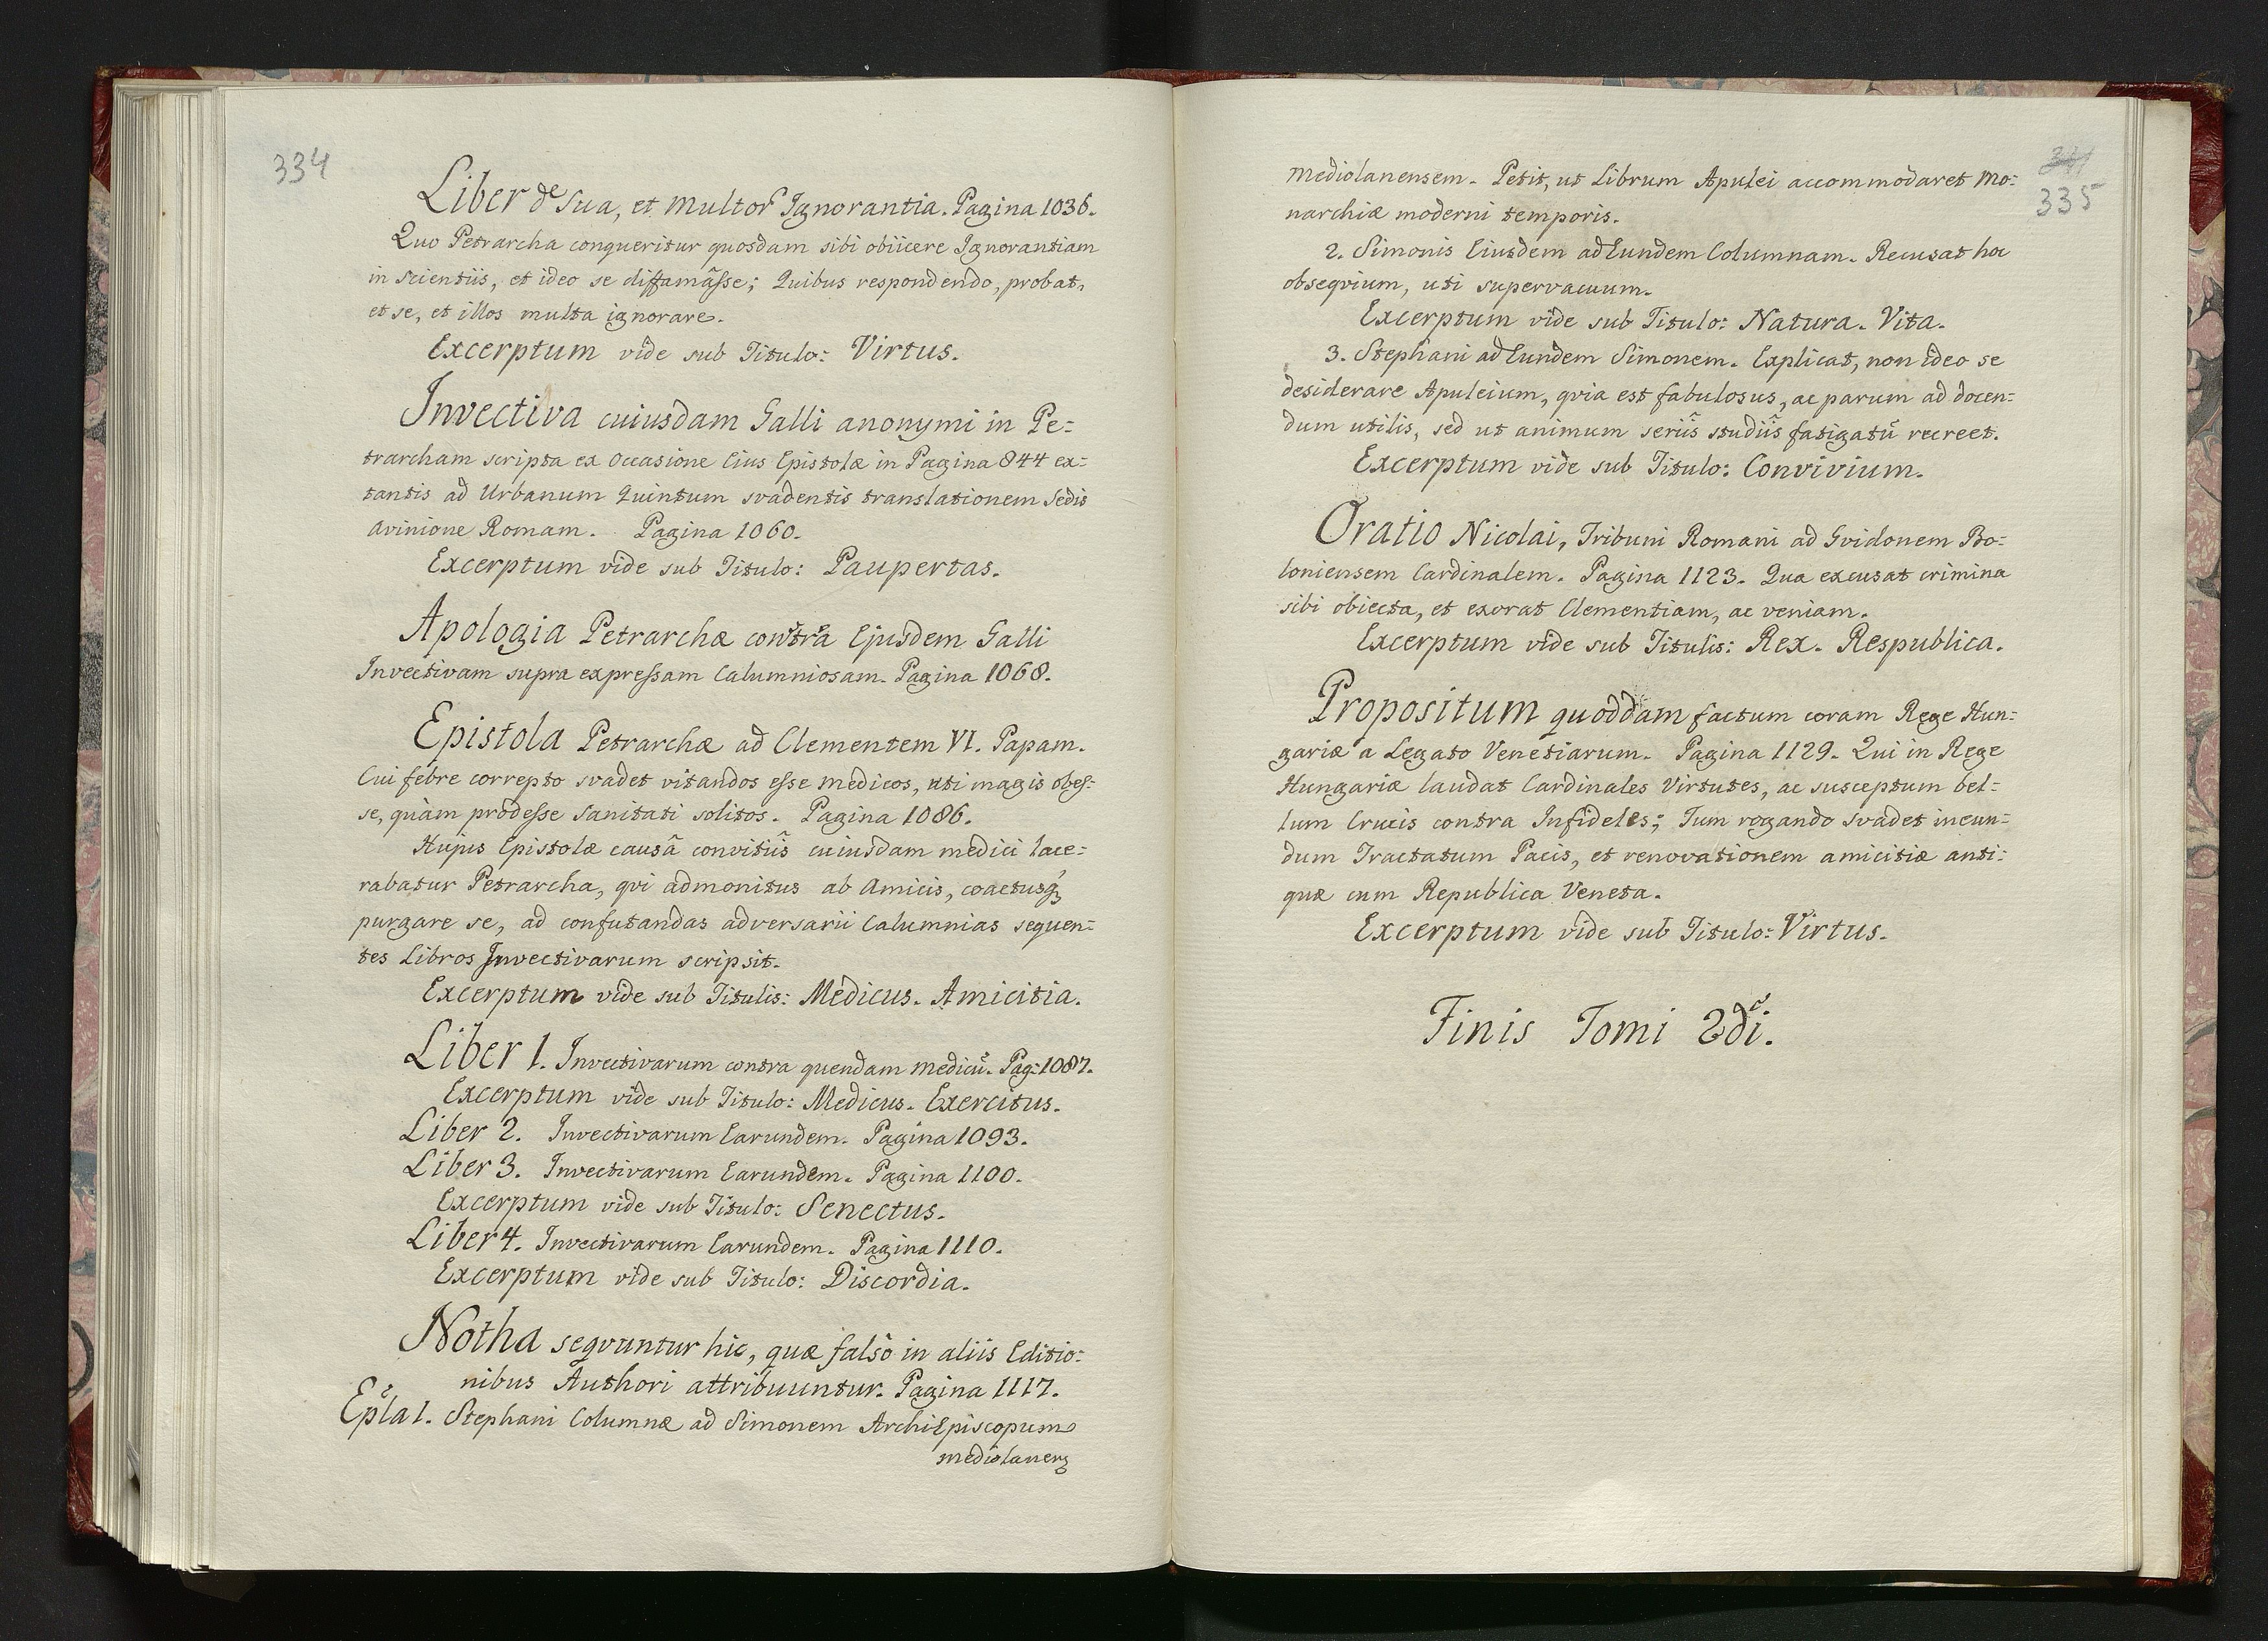 334
Liber de Sua, et Multor Ignorantia. Pagina 1036.
Quo Petrarcha conqueritur quosdam sibi obiicere Ignorantiam
in scientiis, et ideo se diffamâsse; Quibus respondendo, probat,
et se, et illos multa ignorare.
Excerptum vide sub Titulo: Virtus.
Invectiva cuiusdam Galli anonymi in Pe:
trarcham scripta ex Occasione Eius Epistolæ in Pagina 844 ex:
tantis ad Urbanum Quintum svadentis translationem Sedis
Avinione Romam. Pagina 1060.
Excerptum vide sub Titulo: Paupertas.
Apologia Petrarchæ contra Ejusdem Galli
Invectivam supra expressam Calumniosam. Pagina 1068.
Epistola Petrarchæ ad Clementem VI. Papam.
Cui febre correpto svadet vitandos esse medicos, uti magis obes:
se, quàm prodesse Sanitati solitos. Pagina 1086.
Hujus Epistolæ causâ convitiis cuiusdam medici lace:
rabatur Petrarcha, qvi admonitus ab Amicis, coactusq3
purgare se, ad confutandas adversarii Calumnias sequen:
tes Libros Invectivarum scripsit.
Excerptum vide sub Titulis: Medicus. Amicitia.
Liber 1. Invectivarum contra quendam medicũ. Pag: 1087.
Excerptum vide sub Titulo: Medicus. Exercitus.
Liber 2. Invectivarum Earundem. Pagina 1093.
Liber 3. Invectivarum Earundem. Pagina 1100.
Excerptum vide sub Titulo: Senectus.
Liber 4. Invectivarum Earundem. Pagina 1110.
Excerptum vide sub Titulo: Discordia.
Notha seqvuntur hic, quæ falsò in aliis Editio:
nibus Authori attribuuntur. Pagina 1117.
Epla 1. Stephani Columnæ ad Simonem ArchiEpiscopum
mediolanen
335
mediolanensem. Petit, ut Librum Apulei accommodaret Mo:
narchiæ moderni temporis.
2. Simonis Eiusdem ad Eundem Columnam. Recusat hoc
obseqvium, uti supervacuum.
Excerptum vide sub Titulo: Natura. Vita.
3. Stephani ad Eundem Simonem. Explicat, non ideo se
desiderare Apuleium, qvia est fabulosus, ac parum ad docen:
dum utilis, sed ut animum seriis studiis fatigatũ recreet.
Excerptum vide sub Titulo: Convivium.
Oratio Nicolai, Tribuni Romani ad Gvidonem Bo:
loniensem Cardinalem. Pagina 1123. Qua excusat crimina
sibi obiecta, et exorat Clementiam, ac veniam.
Excerptum vide sub Titulis: Rex. Respublica.
Propositum quoddam factum coram Rege Hun:
gariæ a Legato Venetiarum. Pagina 1129. Qui in Rege
Hungariæ laudat Cardinales Virtutes, ac susceptum bel:
lum Crucis contra Infideles; Tum rogando svadet ineun:
dum Tractatum Pacis, et renovationem amicitiæ anti:
quæ cum Republica Veneta.
Excerptum vide sub Titulo: Virtus.
Finis Tomi 2di.